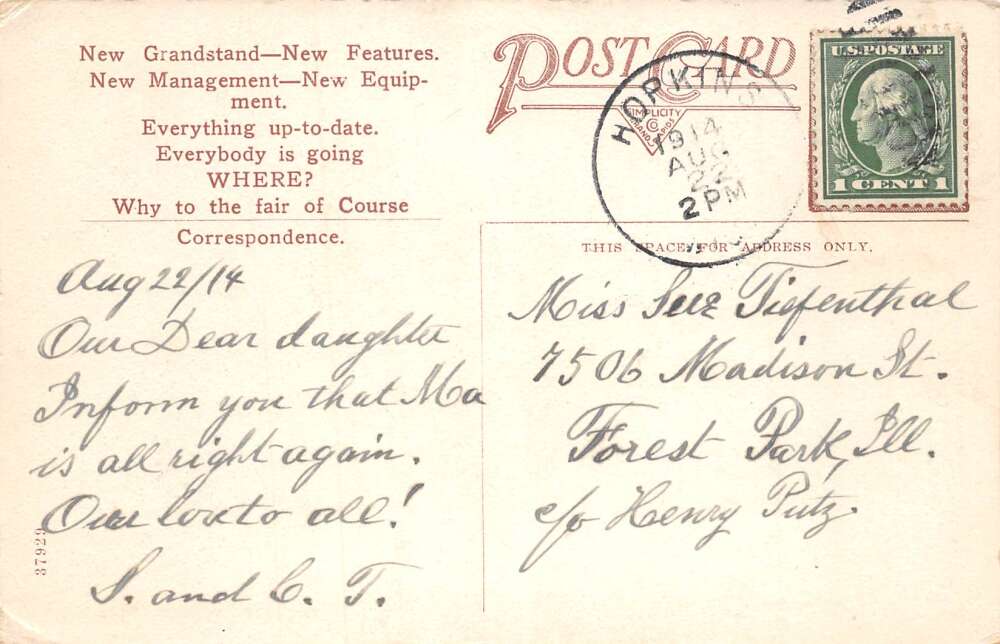 New Grandstand—New Features.
New Management—New Equip-
ment.
Everything up-to-date.
Everybody is going
WHERE?
Why to the fair of Course
Correspondence.
POST CARD
SIMPLICITY
CO
GRAND RAPIDS
HOPKINS
1914
AUG
22
2 PM
U.S. POSTAGE
1 CENT 1
THIS SPACE FOR ADDRESS ONLY.
Aug 22/14
Our Dear daughter
Inform you that Ma
is all right again.
Our love to all!
S. and C. T.
Miss Sue Tiefenthal
7506 Madison St.
Forest Park, Ill.
c/o Henry Putz.
37929